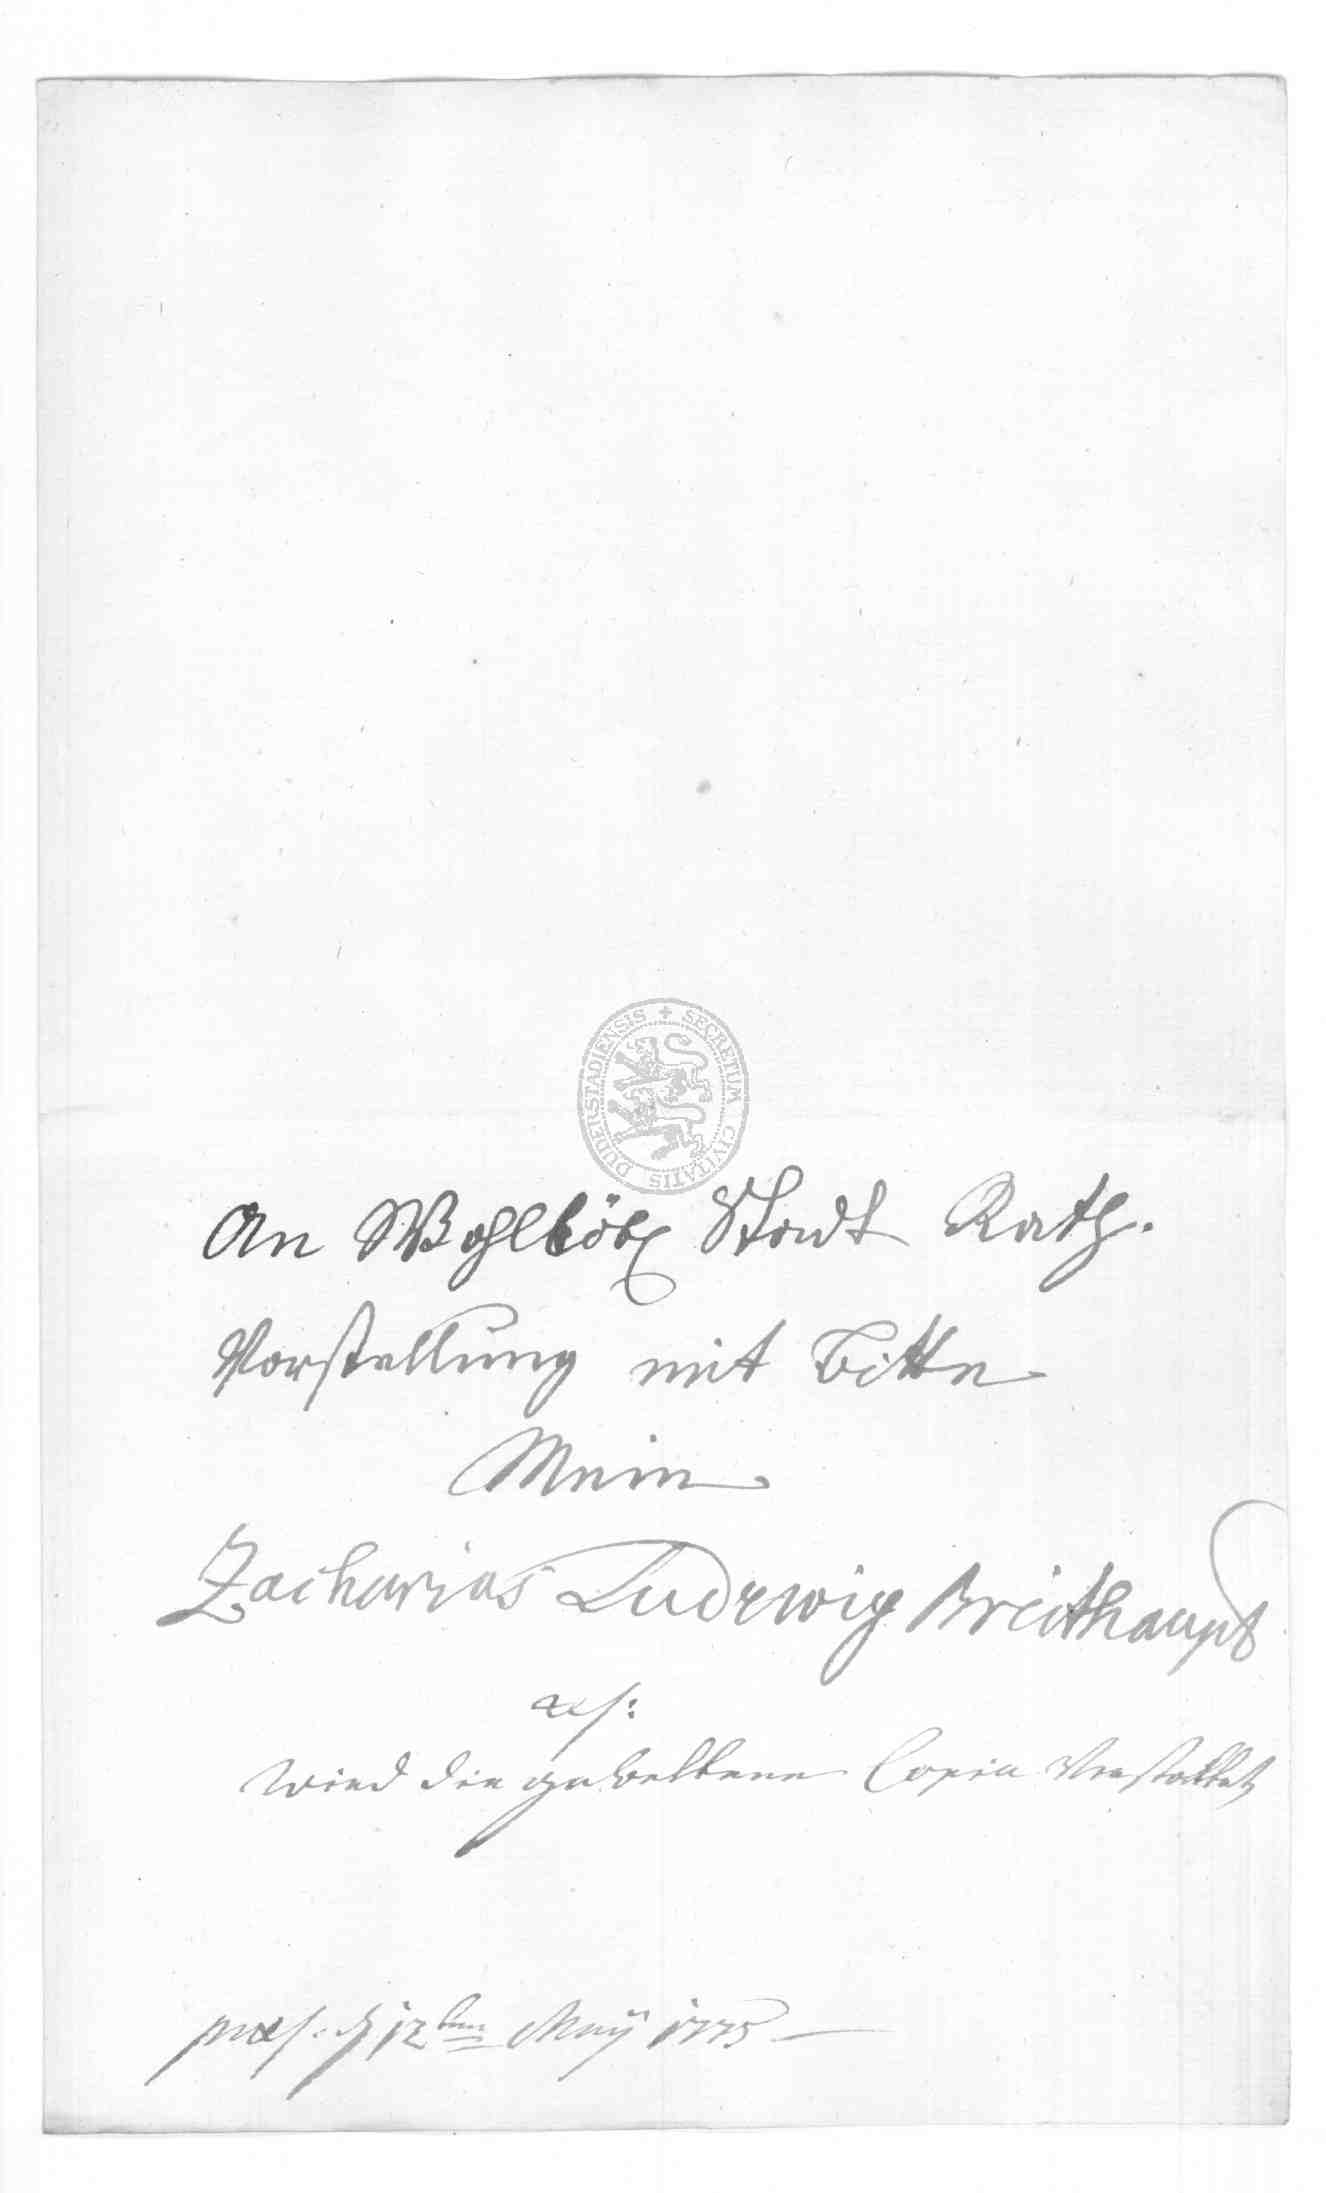 SECRETUM CIVITATIS DUDERSTADIENSIS
An Wohllöbl Stadt Rath.
Vorstellung mit Bitte
Mein
Zacharias Ludewig Breithaupt
res:
wird die gebettene Copia Verstattet
praes. d 12ten Maÿ 1775